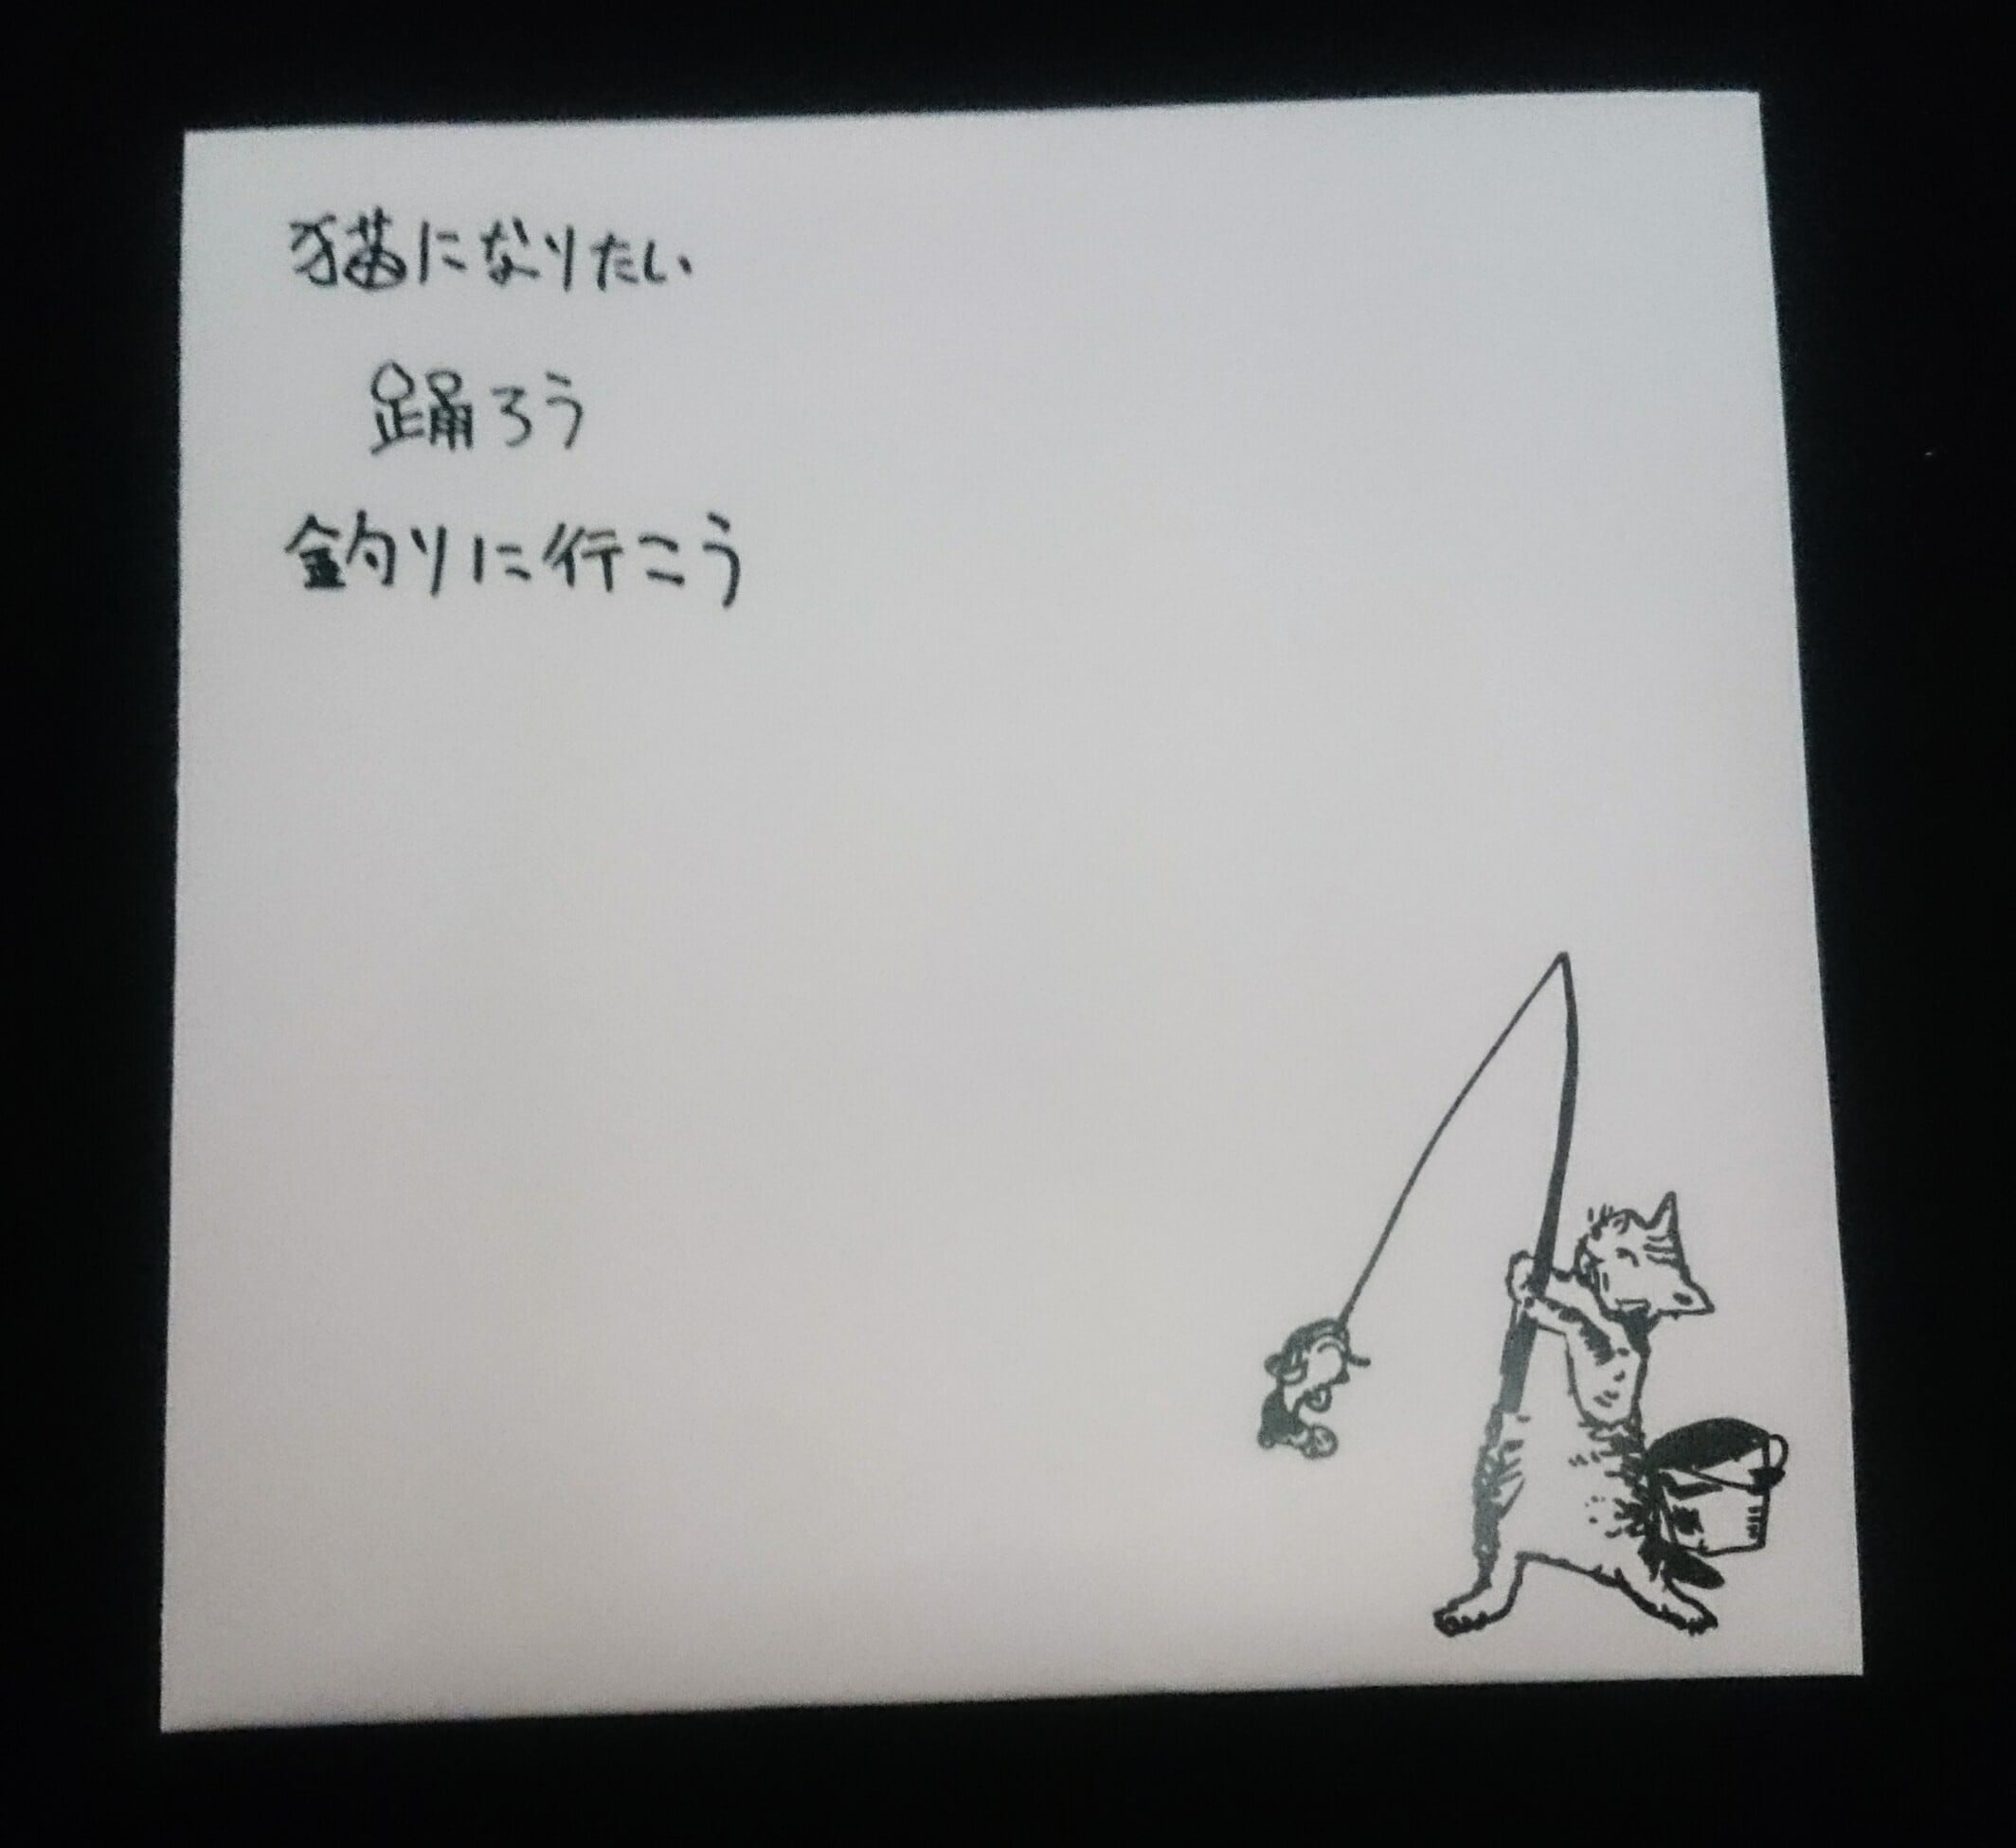 猫になりたい
踊ろう
釣りに行こう